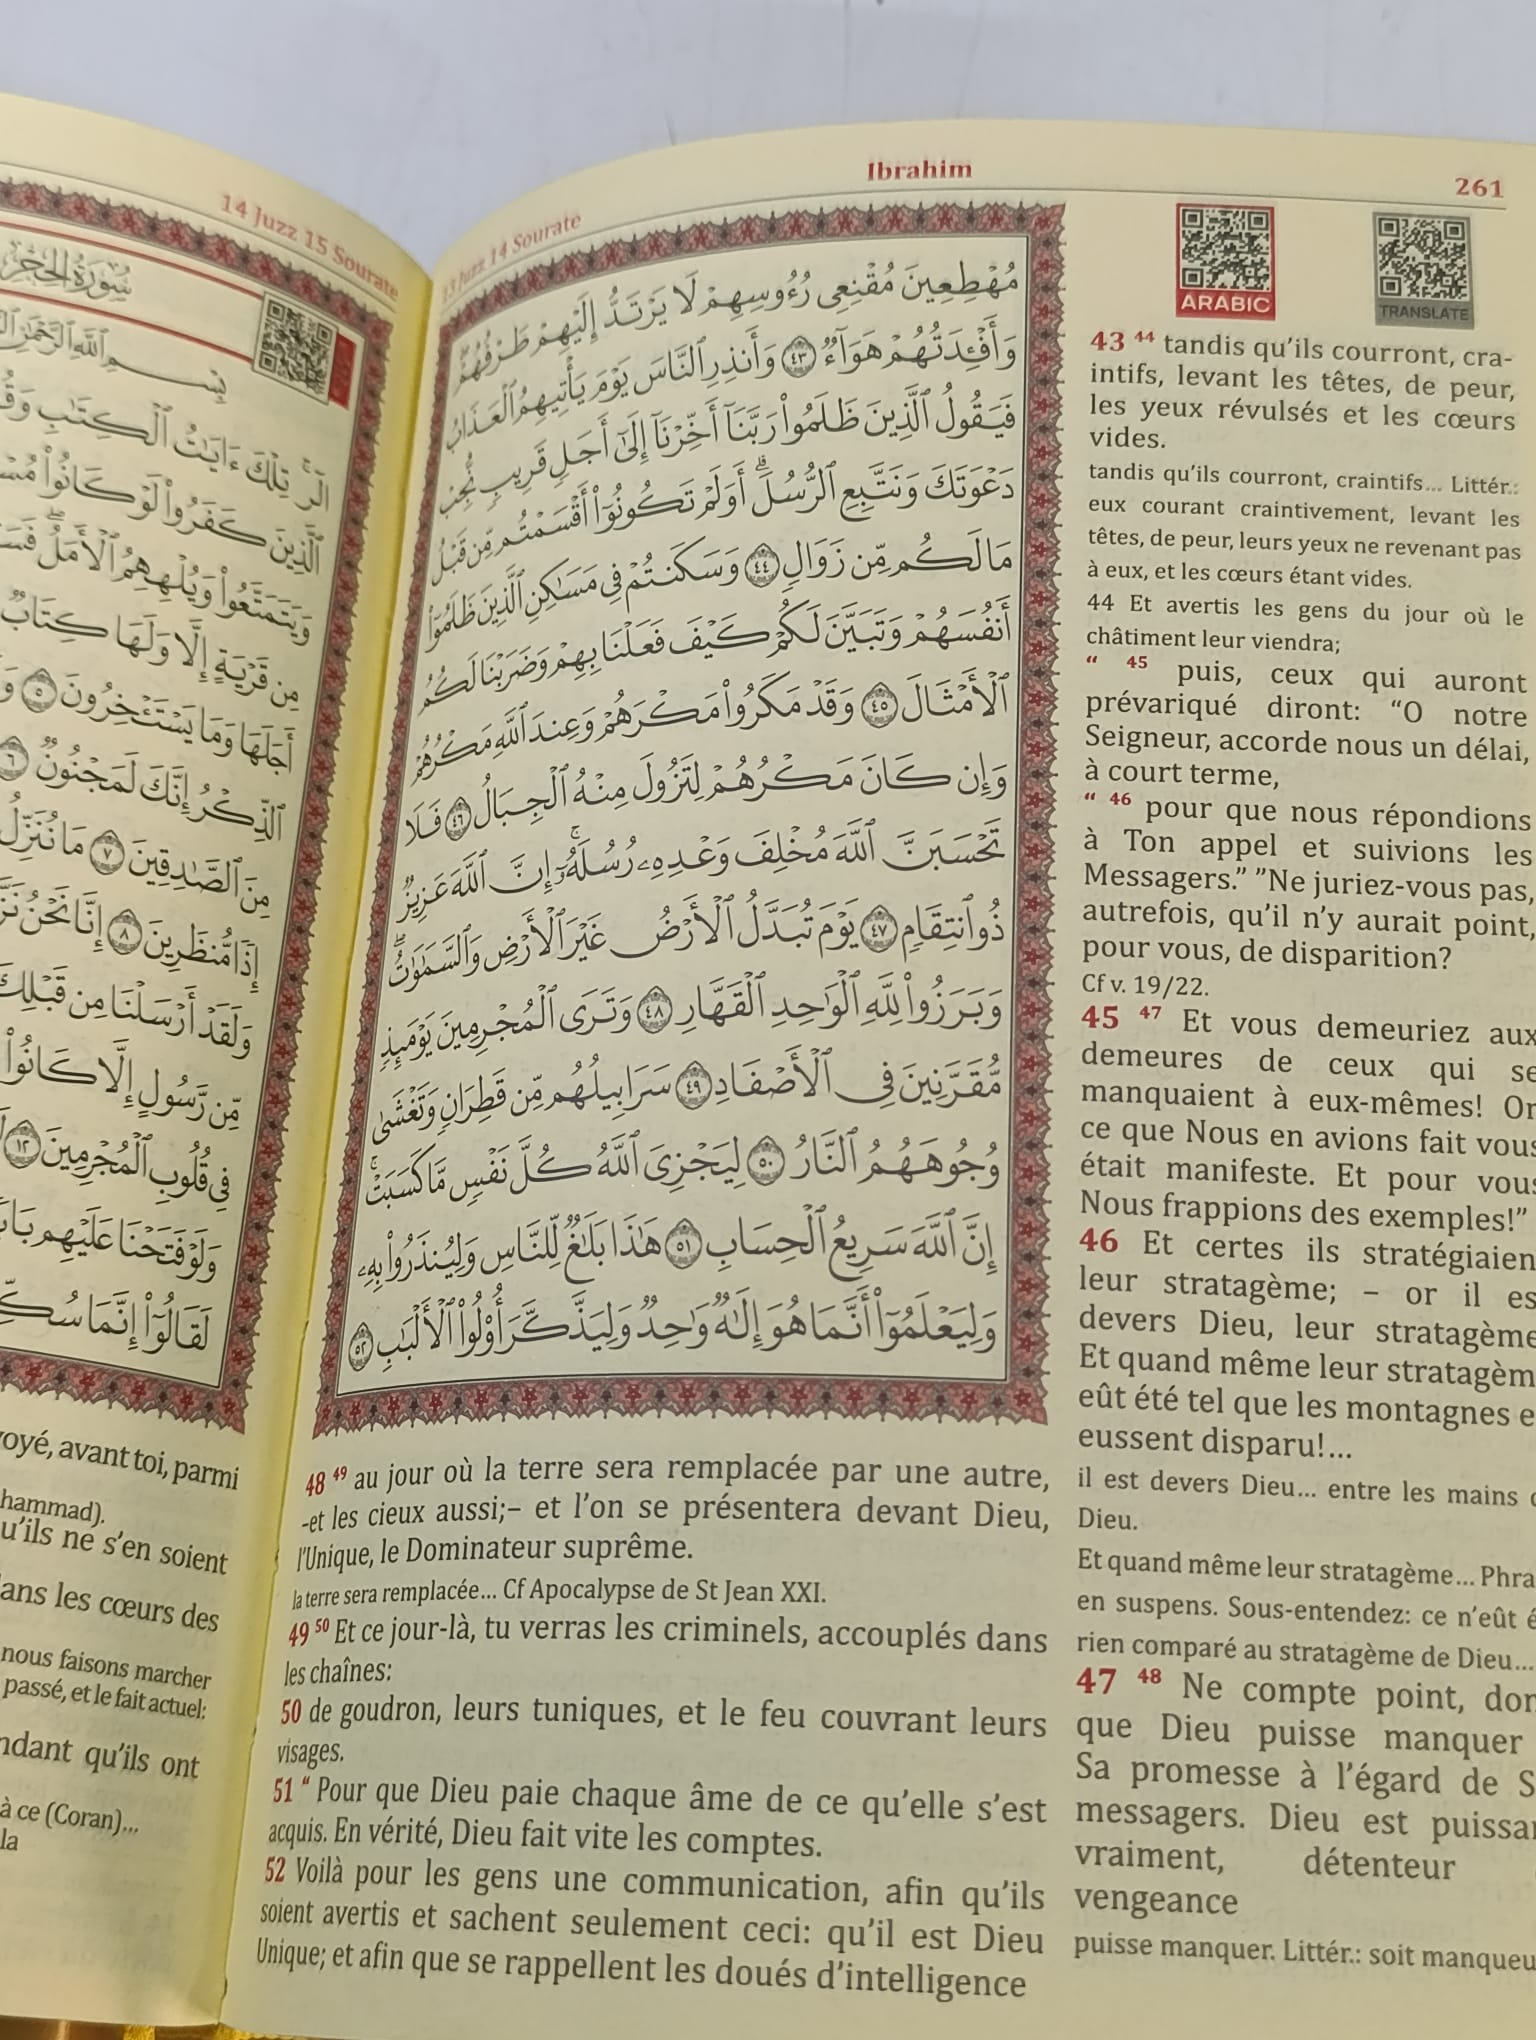 14 Juzz 15 Sourate
سُورَةُ الحِجْرِ
الٓر ۚ تِلْكَ ءَايَٰتُ ٱلْكِتَٰبِ
ٱلَّذِينَ كَفَرُوا۟ لَوْ كَانُوا۟
وَيَتَمَتَّعُوا۟ وَيُلْهِهِمُ ٱلْأَمَلُ ۖ
مِن قَرْيَةٍ إِلَّا وَلَهَا كِتَابٌ
أَجَلَهَا وَمَا يَسْتَـْٔخِرُونَ ٥
ٱلذِّكْرُ إِنَّكَ لَمَجْنُونٌ ٦
مِنَ ٱلصَّٰدِقِينَ ٧ مَا نُنَزِّلُ
إِذًا مُّنظَرِينَ ٨ إِنَّا نَحْنُ
وَلَقَدْ أَرْسَلْنَا مِن قَبْلِكَ
مِّن رَّسُولٍ إِلَّا كَانُوا۟
فِى قُلُوبِ ٱلْمُجْرِمِينَ ١٢
وَلَوْ فَتَحْنَا عَلَيْهِم
لَقَالُوٓا۟ إِنَّمَا
avant toi, parmi
hammad).
u’ils ne s’en soient
ans les cœurs des
nous faisons marcher
passé, et le fait actuel:
ndant qu’ils ont
à ce (Coran)...
la
13 Juzz 14 Sourate
Ibrahim
261
مُهْطِعِينَ مُقْنِعِى رُءُوسِهِمْ لَا يَرْتَدُّ إِلَيْهِمْ طَرْفُهُمْ
وَأَفْـِٔدَتُهُمْ هَوَآءٌ ٤٣ وَأَنذِرِ ٱلنَّاسَ يَوْمَ يَأْتِيهِمُ ٱلْعَذَابُ
فَيَقُولُ ٱلَّذِينَ ظَلَمُوا۟ رَبَّنَآ أَخِّرْنَآ إِلَىٰٓ أَجَلٍ قَرِيبٍ نُّجِبْ
دَعْوَتَكَ وَنَتَّبِعِ ٱلرُّسُلَ ۗ أَوَلَمْ تَكُونُوٓا۟ أَقْسَمْتُم مِّن قَبْلُ
مَا لَكُم مِّن زَوَالٍ ٤٤ وَسَكَنتُمْ فِى مَسَٰكِنِ ٱلَّذِينَ ظَلَمُوٓا۟
أَنفُسَهُمْ وَتَبَيَّنَ لَكُمْ كَيْفَ فَعَلْنَا بِهِمْ وَضَرَبْنَا لَكُمُ
ٱلْأَمْثَالَ ٤٥ وَقَدْ مَكَرُوا۟ مَكْرَهُمْ وَعِندَ ٱللَّهِ مَكْرُهُمْ
وَإِن كَانَ مَكْرُهُمْ لِتَزُولَ مِنْهُ ٱلْجِبَالُ ٤٦ فَلَا
تَحْسَبَنَّ ٱللَّهَ مُخْلِفَ وَعْدِهِۦ رُسُلَهُۥٓ ۗ إِنَّ ٱللَّهَ عَزِيزٌ
ذُو ٱنتِقَامٍ ٤٧ يَوْمَ تُبَدَّلُ ٱلْأَرْضُ غَيْرَ ٱلْأَرْضِ وَٱلسَّمَٰوَٰتُ ۖ
وَبَرَزُوا۟ لِلَّهِ ٱلْوَٰحِدِ ٱلْقَهَّارِ ٤٨ وَتَرَى ٱلْمُجْرِمِينَ يَوْمَئِذٍ
مُّقَرَّنِينَ فِى ٱلْأَصْفَادِ ٤٩ سَرَابِيلُهُم مِّن قَطِرَانٍ وَتَغْشَىٰ
وُجُوهَهُمُ ٱلنَّارُ ٥٠ لِيَجْزِىَ ٱللَّهُ كُلَّ نَفْسٍ مَّا كَسَبَتْ ۚ
إِنَّ ٱللَّهَ سَرِيعُ ٱلْحِسَابِ ٥١ هَٰذَا بَلَٰغٌ لِّلنَّاسِ وَلِيُنذَرُوا۟ بِهِۦ
وَلِيَعْلَمُوٓا۟ أَنَّمَا هُوَ إِلَٰهٌ وَٰحِدٌ وَلِيَذَّكَّرَ أُو۟لُوا۟ ٱلْأَلْبَٰبِ ٥٢
ARABIC
TRANSLATE
43 44 tandis qu’ils courront, cra-
intifs, levant les têtes, de peur,
les yeux révulsés et les cœurs
vides.
tandis qu’ils courront, craintifs... Littér.:
eux courant craintivement, levant les
têtes, de peur, leurs yeux ne revenant pas
à eux, et les cœurs étant vides.
44 Et avertis les gens du jour où le
châtiment leur viendra;
“ 45 puis, ceux qui auront
prévariqué diront: “O notre
Seigneur, accorde nous un délai,
à court terme,
“ 46 pour que nous répondions
à Ton appel et suivions les
Messagers.” ”Ne juriez-vous pas,
autrefois, qu’il n’y aurait point,
pour vous, de disparition?
Cf v. 19/22.
45 47 Et vous demeuriez aux
demeures de ceux qui se
manquaient à eux-mêmes! Or
ce que Nous en avions fait vous
était manifeste. Et pour vous
Nous frappions des exemples!”
46 Et certes ils stratégiaien
leur stratagème; – or il es
devers Dieu, leur stratagème
Et quand même leur stratagèm
eût été tel que les montagnes e
eussent disparu!...
il est devers Dieu... entre les mains d
Dieu.
Et quand même leur stratagème... Phra
en suspens. Sous-entendez: ce n’eût é
rien comparé au stratagème de Dieu...
47 48 Ne compte point, don
que Dieu puisse manquer
Sa promesse à l’égard de S
messagers. Dieu est puissan
vraiment, détenteur
vengeance
puisse manquer. Littér.: soit manqueu
48 49 au jour où la terre sera remplacée par une autre,
-et les cieux aussi;– et l’on se présentera devant Dieu,
l’Unique, le Dominateur suprême.
la terre sera remplacée... Cf Apocalypse de St Jean XXI.
49 50 Et ce jour-là, tu verras les criminels, accouplés dans
les chaînes:
50 de goudron, leurs tuniques, et le feu couvrant leurs
visages.
51 “ Pour que Dieu paie chaque âme de ce qu’elle s’est
acquis. En vérité, Dieu fait vite les comptes.
52 Voilà pour les gens une communication, afin qu’ils
soient avertis et sachent seulement ceci: qu’il est Dieu
Unique; et afin que se rappellent les doués d’intelligence